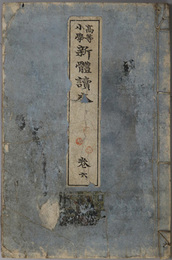 高等
小學
新體讀本
卷六